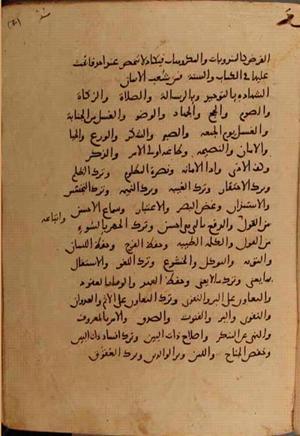 الفروض والمندوبات والمكروهات فيكاد لا تنحصر عنوا حرفا نحث
عليها في الكتاب والسنة فمن شعب الايمان
الشهادة بالتوحيد وبالرسالة والصلاة والزكاة
والصوم والحج والجهاد والوضو والغسل من الجنابة
والغسل يوم الجمعة والصبر والشكر والورع والحيا
والامان والنصيحة وطاعة اولي الامر والذكر
وكف الاذى واداء الامانة ونصرة المظلوم وترك الظلم
وترك الاحتقار وترك الغيبة وترك النميمة وترك التجسس
والاستئذان وغض البصر والاعتبار وسماع الاحسن واتباعه
من القول والدفع بالتي هي احسن وترك الجهر بالسوء
من القول والكلمة الطيبة وحفظ الفرج وحفظ اللسان
والتوبة والتوكل والخشوع وترك اللغو والاشتغال
بما يعني وترك ما لا يعني وحفظ العهد والوفاء بالعقود
والتعاون على البر والتقوى وترك التعاون على الاثم والعدوان
والتقوى والبر والقنوت والصدق والامر بالمعروف
والنهي عن المنكر واصلاح ذات البين وترك افساد ذات البين
وخفض الجناح واللين وبر الوالدين وترك العقوق